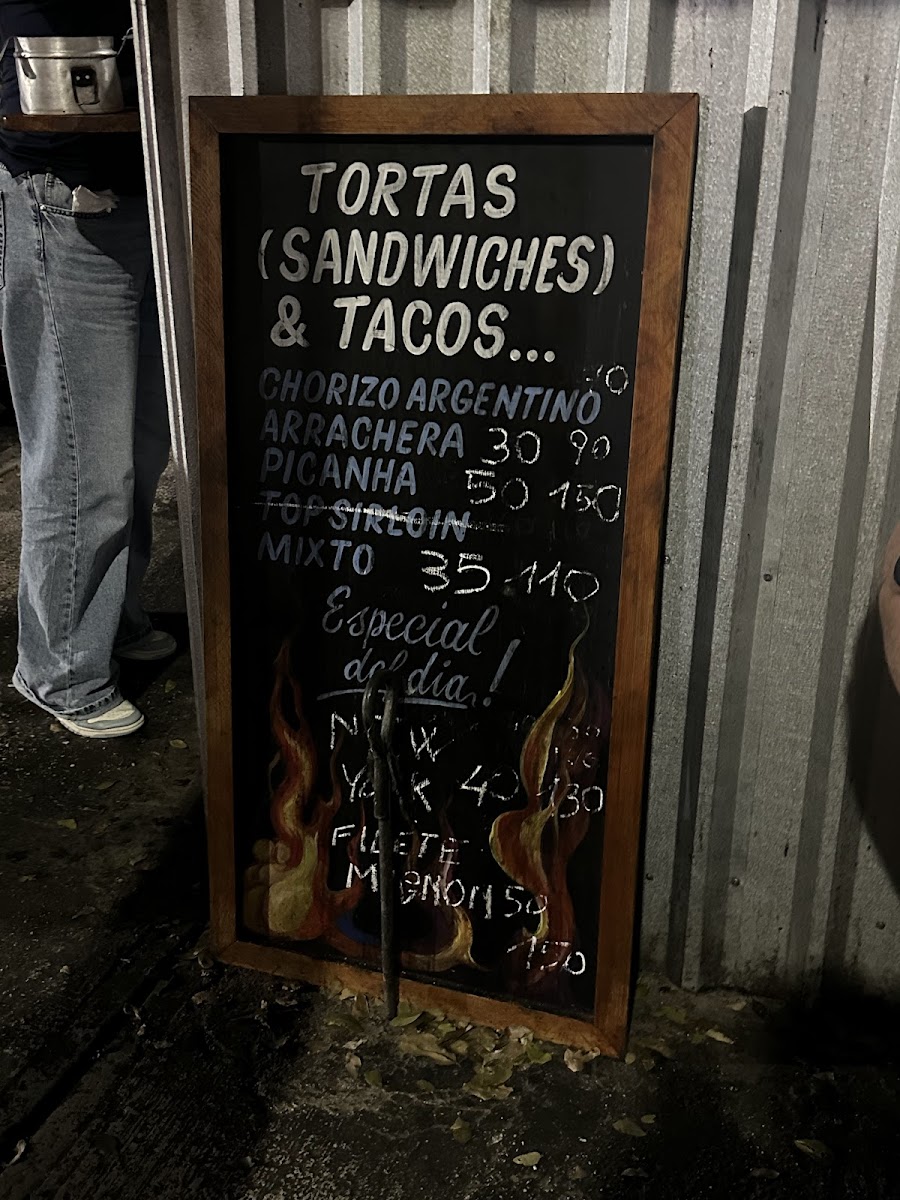 TORTAS
(SANDWICHES)
& TACOS...
CHORIZO ARGENTINO
ARRACHERA 30 90
PICANHA 50 150
TOP SIRLOIN
MIXTO 35 110
Especial
del dia!
NEW
YORK 40 130
FILETE
MIGNON 50
150